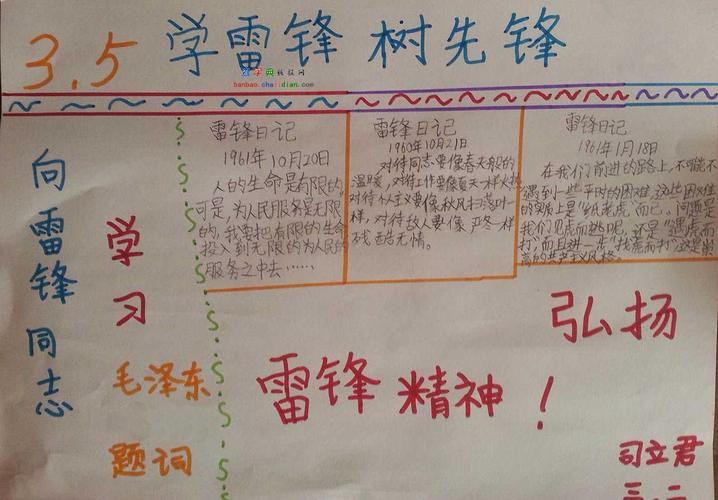 3.5 学雷锋 树先锋
查字典教师网
banbao.chazidian.com
向雷锋同志
学习
毛泽东
题词
雷锋日记
1961年10月20日
人的生命是有限的
可是,为人民服务是无限
的,我要把有限的生命
投入到无限的为人民的
服务之中去……
雷锋日记
1960年10月21日
对待同志要像春天般的
温暖,对待工作要像夏天一样火热
对待个人主义要像秋风扫落叶一
样,对待敌人要像严冬一样
残酷无情。
雷锋日记
1961年1月18日
在我们前进的路上,不可能不
遇到一些暂时的困难,这些困难
的实质上是“纸老虎”而已。问题是
我们见虎而逃呢,还是“遇虎而
打”而且进一步“找虎而打”这是崇
高的共产主义风格。
弘扬
雷锋精神!
司立君
三.二